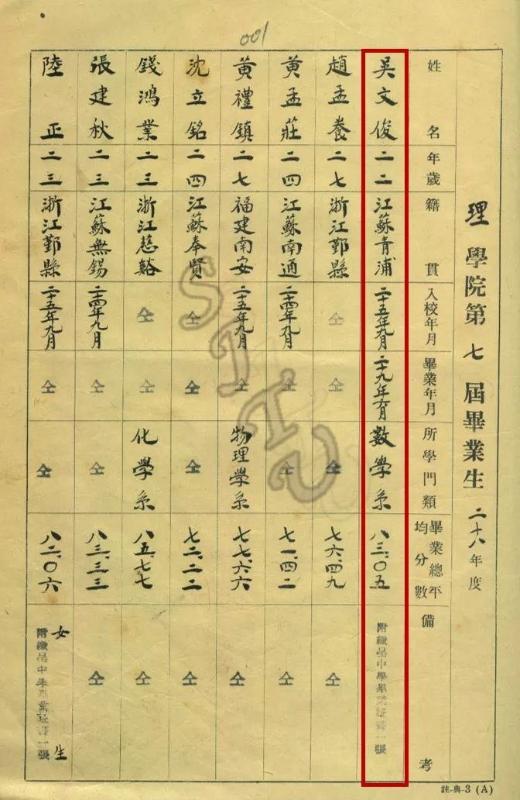 001
理學院第七屆畢業生 二十八年度
姓名 年歲 籍貫 入校年月 畢業年月 所學門類 畢業總平均分數 備考
吳文俊 二二 江蘇青浦 二十五年九月 二十九年六月 數學系 八三.〇五 附繳吊中學畢業證書一張
趙孟養 二七 浙江鄞縣 仝 仝 仝 七六.四九 仝
黃孟莊 二四 江蘇南通 二十四年九月 仝 仝 七一.四二 仝
黃禮鎮 二七 福建南安 二十五年九月 仝 物理學系 七七.六六 仝
沈立銘 二四 江蘇奉賢 仝 仝 仝 七二.二二 仝
錢鴻業 二三 浙江慈谿 仝 仝 化學系 八五.七七 仝
張建秋 二三 江蘇無錫 二十四年九月 仝 仝 八三.三三 仝
陸正 二三 浙江鄞縣 二十五年九月 仝 仝 八二.〇六 女生 附繳吊中學畢業證書一張
註-典-3 (A)